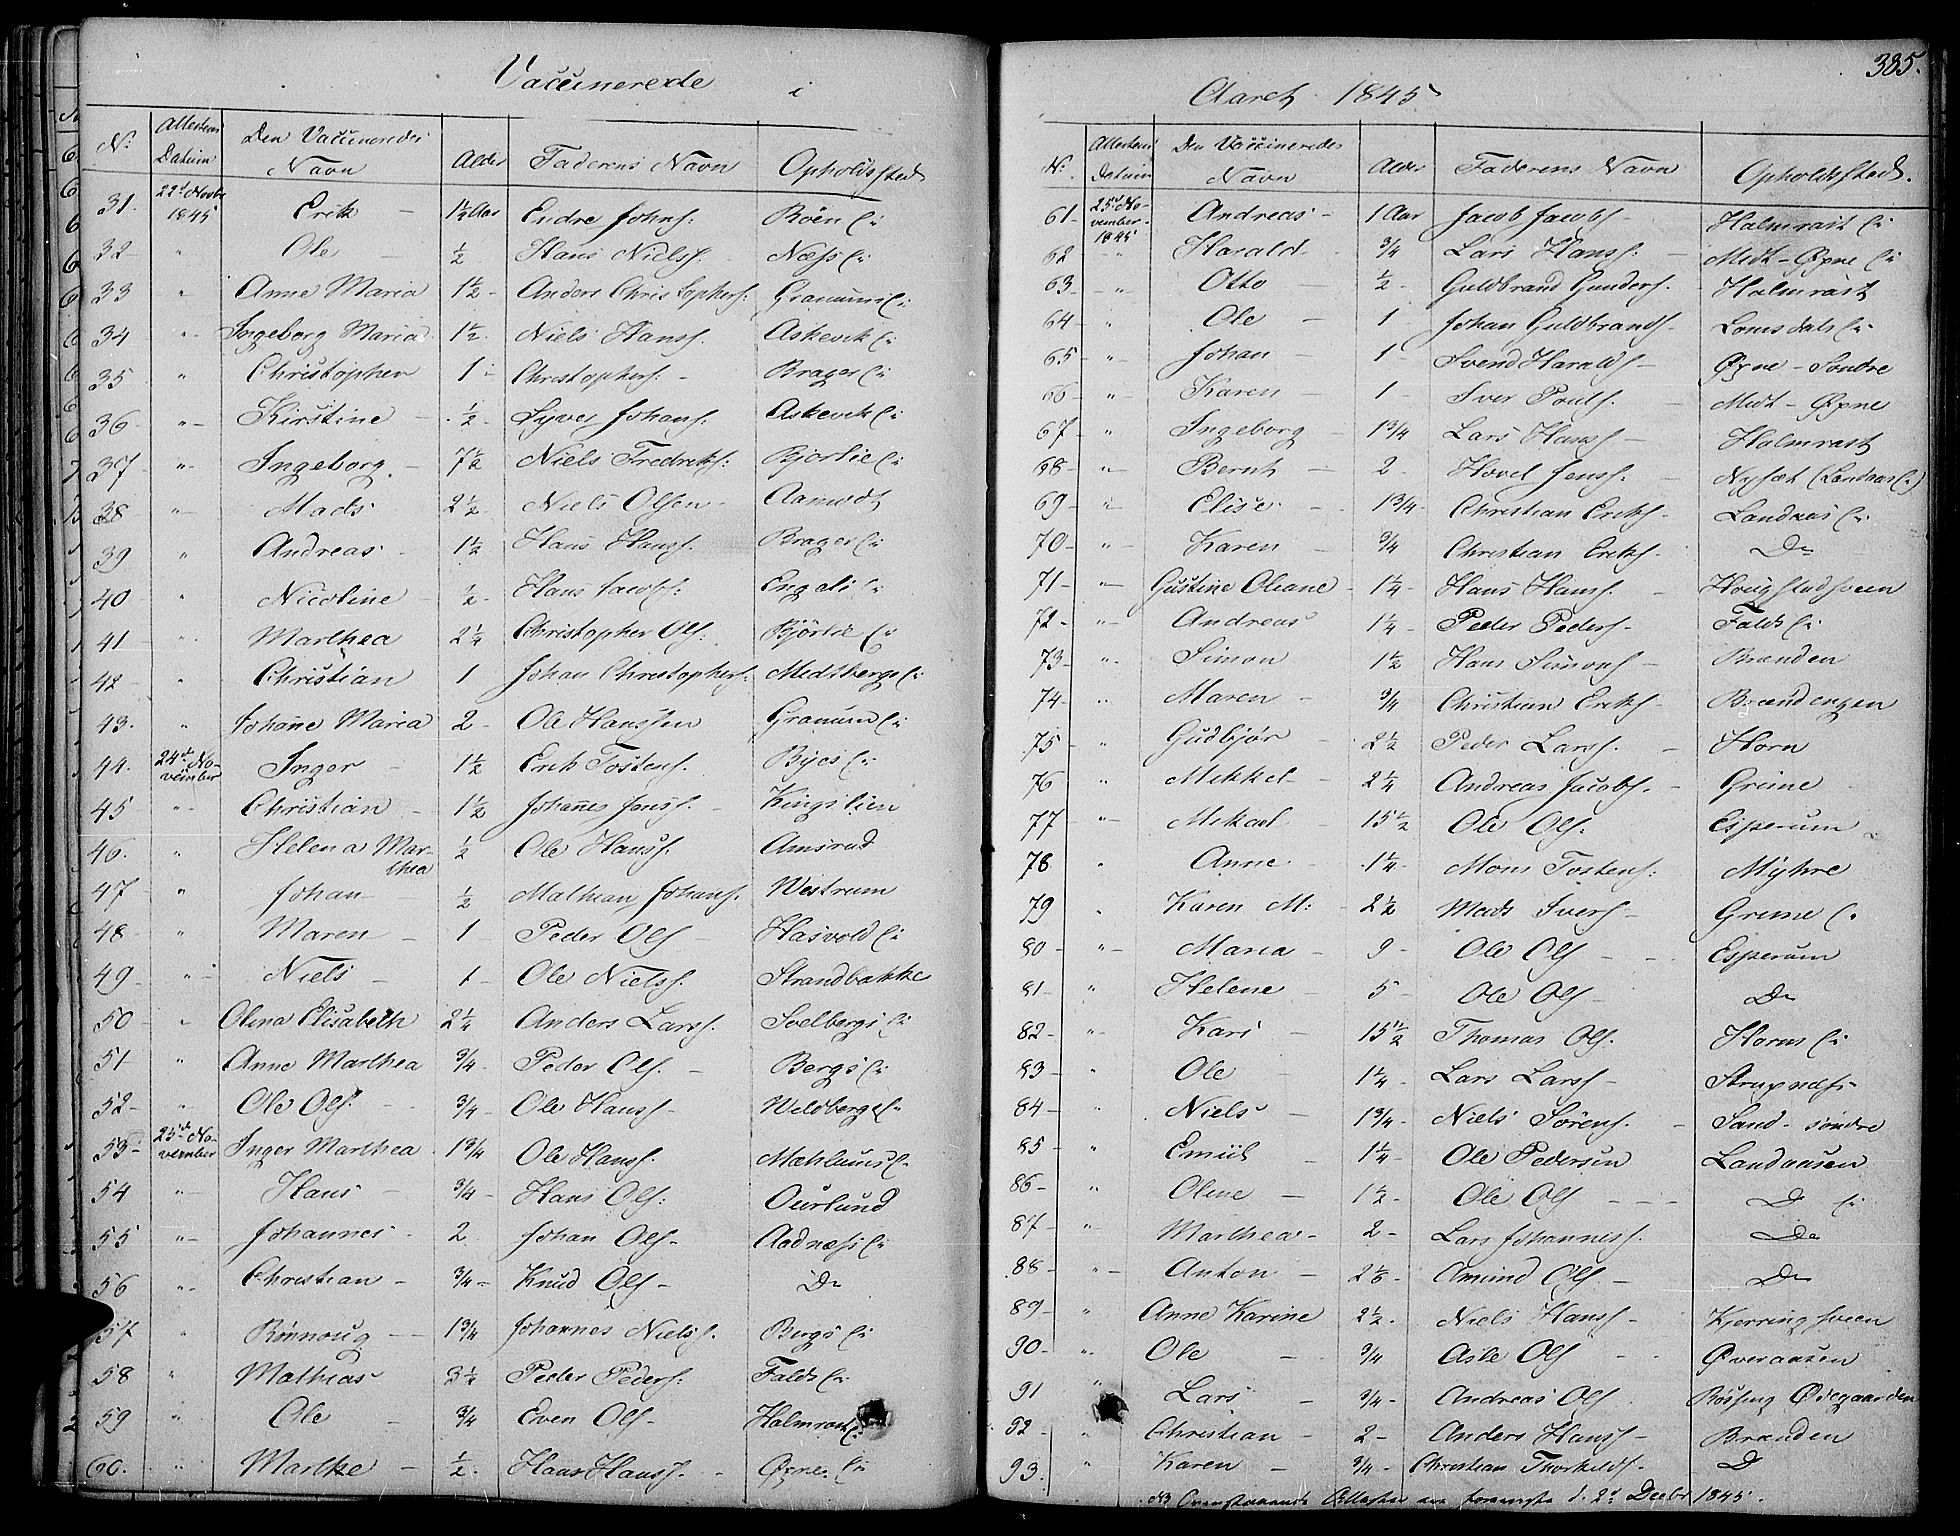 Vaccinerede i
N: Attestens Datum Den Vaccineredes Navn Alder Faderens Navn Opholdssted
31. 22d Novbr 1845 Erik - 1½ Aar Endre Johns: Röen E:
32 " Ole - ½ Hans Niels: Næss E:
33 " Anne Maria 1½ - Anders Christophers: Granum E:
34 " Ingeborg Maria 1½. Niels Hans. Askevik E:
35 " Christopher 1 - Christophers: - Brager E:
36 " Kirstine - ½ - Syver Johans: Askevik E:
37 " Ingeborg. - 7½ Niels Fredriks: Bjorlie E:
38 " Mads 2½ Niels Olsen - Aamodt
39 " Andreas 1½ Hans Hans. Brager E:
40 " Nicoline - ½ - Hans Jacobs: Engeli E:
41 " Marthea 2¼ Christopher Ols: Björlie E:
42 " Christian 1 Johan Christophers: Midtbergs E:
43. " Johane Maria 2 - Ole Hanssen Granum E:
44. 24de November Inger - 1½ Erik Tostens. Byes E:
45 " Christian - 1½ Johanes Jens. - Kingslien
46. " Helena Marthea ½ Ole Hans. Amsrud
47 " Johan - ½ Mathian Johans. Westrum
48 " Maren - 1 - Peder Ols - Hasvold E:
49 " Niels - 1 - Ole Niels. Strandbakke
50 " Olena Elisabeth 2¼ Anders Lars. Soelbergs E:
51 " Anne Marthea ¾ - Peder Ols. - Bergs E:
52 - " Ole Ols. - ¾ - Ole Hans - Weldbergs E:
53 - 25de November Inger Marthea 1¾ Ole Hans. Mæhlums E.
54 " Hans - ¾ - Hans Ols: Ourlund
55 " Johannes - 2 Johan Ols - Aadnæs E:
56 " Christian - ¾ - Knud Ols - Do
57 " Rønnoug - 1¾ Johannes Niels. Bergs E:
58 " Mathias 3½ Peder Peders: Falds E:
59 " Ole - ¾ Even Ols - Halmrast E:
60. " Marthe - ½ - Hans Hans. - Øxne E:
Aaret 1845
385.
N: Attestens Datum Den Vaccineredes Navn Alder Faderens Navn Opholdssted.
61 - 25de November 1845 Andreas - 1 Aar Jacob Jacobs - Halmrast E:
62 - " Harald - ¾ Lars Hans: - Midt-Øxne E:
63 - " Otto - ½ - Guldbrand Gunders. - Halmrast
64 " Ole - 1 - Johan Guldbrands - Lomsdals E:
65 " Johan - 1 - Svend Haralds - Øxne-Søndre
66 " Karen - 1 - Iver Pouls. - Midt-Øxne
67 - " Ingeborg - 1¾ Lars Hans - Halmrast
68 - " Bernt - 2 - Hovel Jens: - Nysæt (Landaas E:)
69 " Elise - 1¾ - Christian Eriks - Landaas E:
70 - " Karen - ¾ Christian Eriks - Do
71 - " Gustine Oleane - 1¼ - Hans Hans. - Hougstadsveen
72 - " Andreas 1¼ - Peder Peders - Falds E:
73 - " Simon 1½ Hans Simons - Brænden
74 " Maren - ¾ Christian Eriks - Brændengen
75 " Gudbjør - 2½ - Peder Lars. - Horn
76 " Mikkel - 2¼ Andreas Jacobs. - Grime
77 " Mikael - 15½ Ole Ols: Esperum
78 " Anne - 1¼ - Mons Tostens: Myhre
79 " Karen M: - 2½ Mads Ivers - Grime E.
80 - " Maria - 9 - Ole Ols - Esperum
81 - " Helene - 5 - Ole Ols - Do
82 - " Kari - 15½ Thomas Ols. Horns E:
83 - " Ole - 1¼ - Lars Lars - Strupnæs
84 - " Niels - 1¾ - Niels Sörens. - Sand-søndre
85 - " Emiil - 1¼ - Ole Pedersen Landaasen
86 - " Olene - 1½ - Ole Ols - Do E:
87 - " Marthea - 2 - Lars Johannes. Do
88 - " Anton - 2⅙ - Amund Ols - Do
89 - " Anne Karine 2½. Niels Hans - Kjerringsveen
90 - " Ole - ¾ Asle Ols - Øveraasen
91 " Lars - ¾ - Andreas Ols Røssing Ødegaarden
92 - " Christian - 2 - Anders Hans - Brænden
93. " Karen - ¾ - Christian Thorkilds - Do
NB Ovenstaaende Attester ere fremviste d. 2d Decbr 1845.